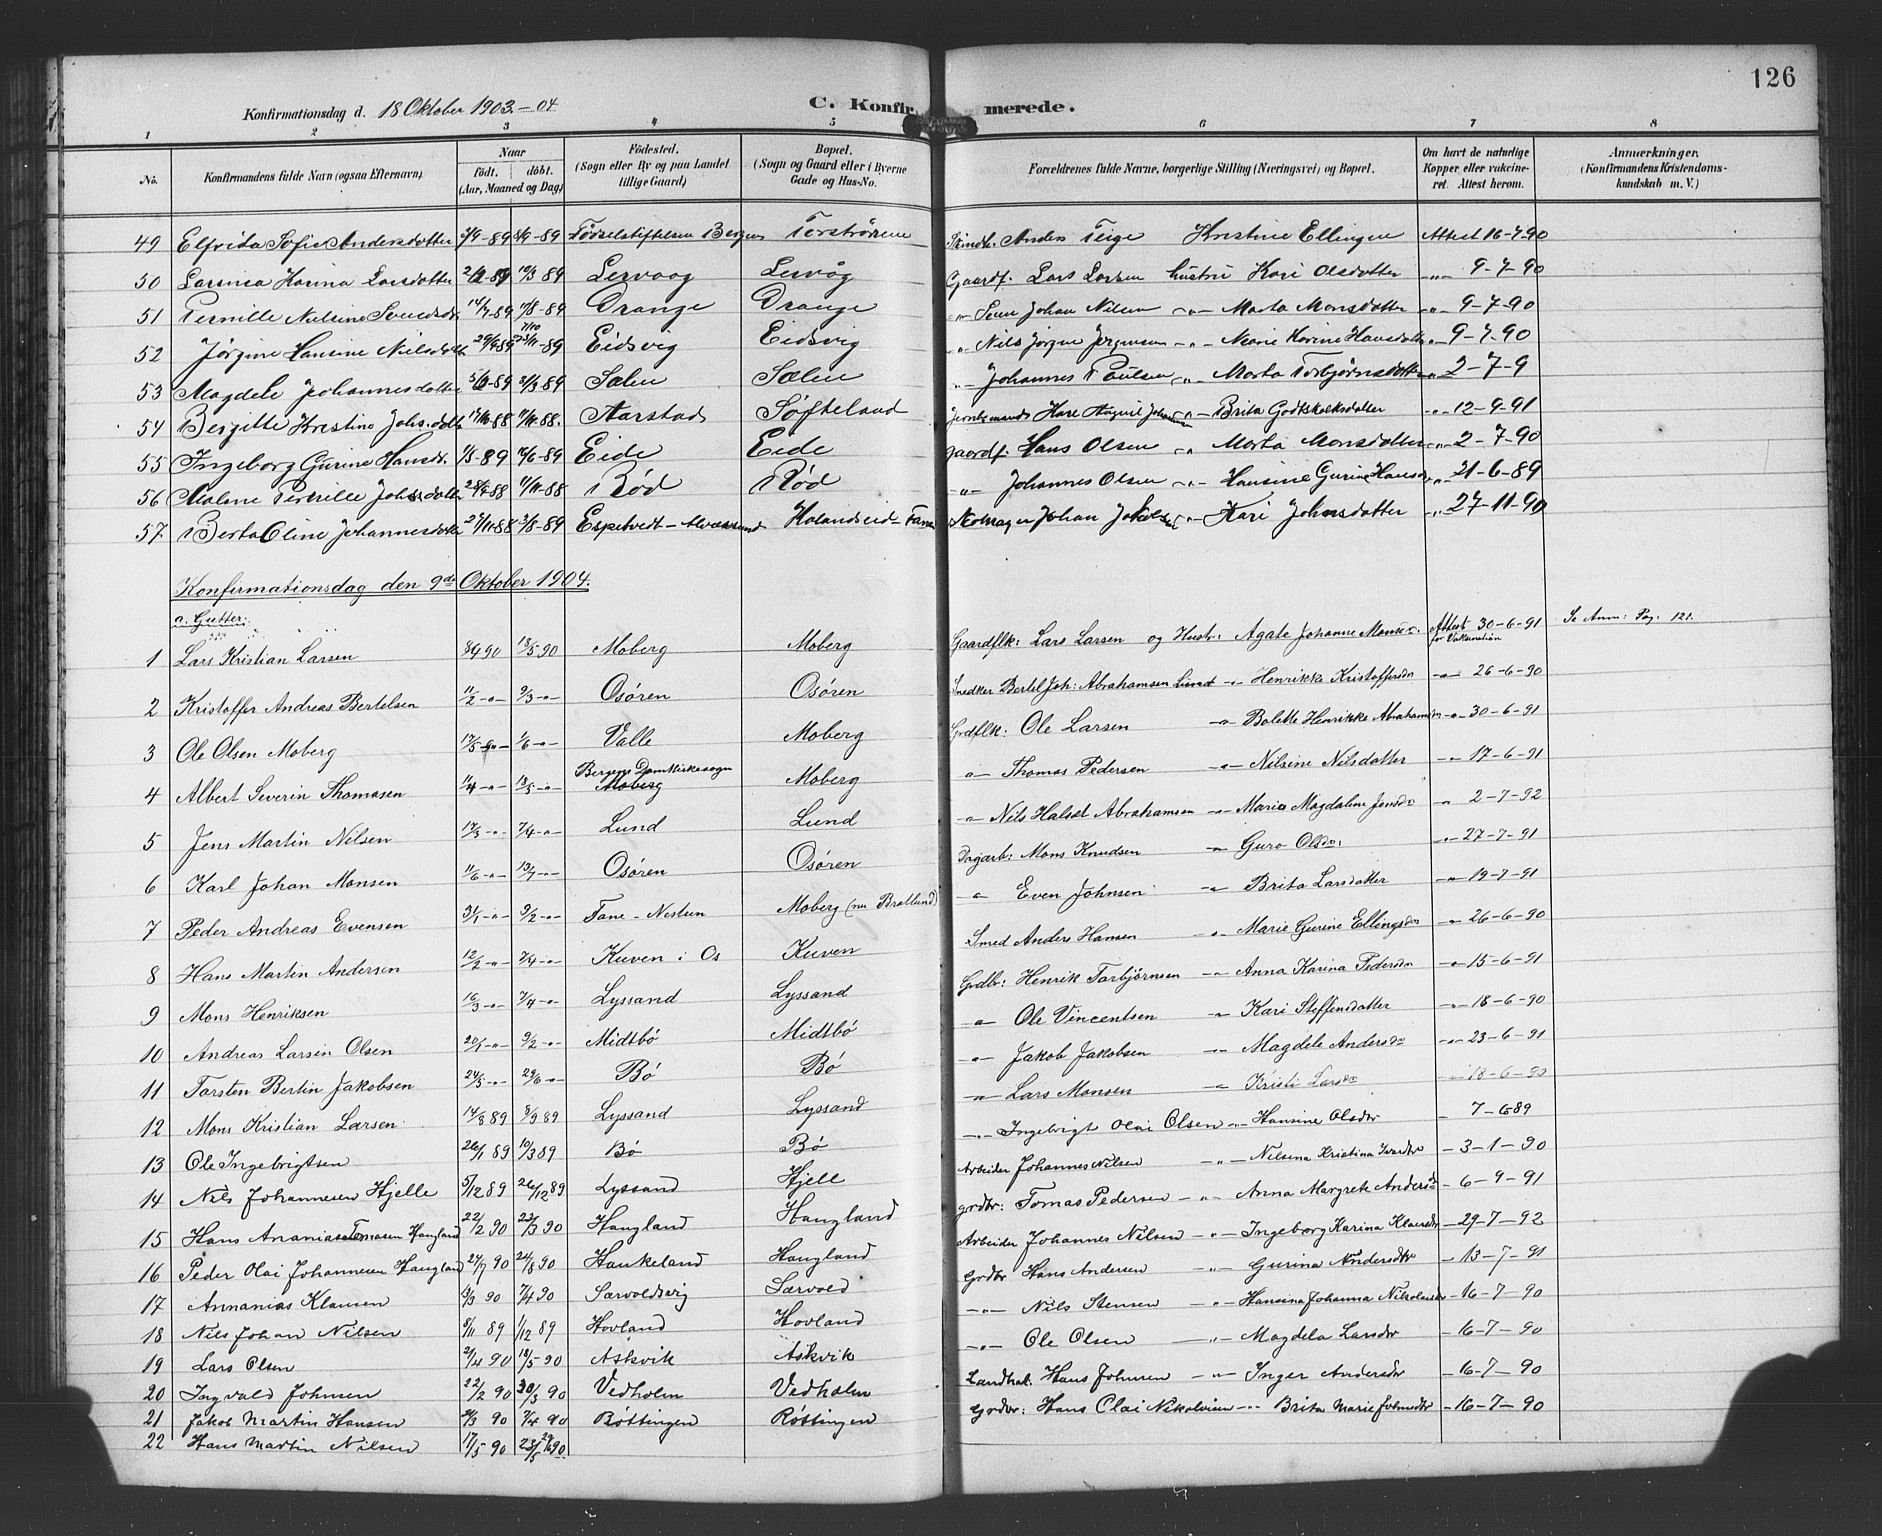 126
Konfirmationsdag d. 18 Oktober 1903 - 04
C. Konfirmerede.
1 2 3 4 5 6 7 8
No. Konfirmandens fulde Navn (ogsaa Efternavn). Naar født. døbt. (Aar, Maaned og Dag) Fødested. (Sogn eller By og paa Landet tillige Gaard) Bopæl. (Sogn og Gaard eller i Byerne Gade og Hus-No. Forældrenes fulde Navne, borgerlige Stilling (Næringsvei) og Bopæl. Om havt de naturlige Kopper eller vakcineret. Attest herom. Anmærkninger. (Konfirmandens Kristendomskundskab m. V.)
49 Elfrida Sofie Andersdatter Fødselstiftelsen Bergen Anders Teige Kristine Ellingen Attest 16-7-90
50 Larsina Hanna Larsdatter Lervaag Lervåg Gaardf. Lars Larsen hustru Kari Olsdatter -"- 9-7-90
51 Pernille Nilsine Drange Drange -"- Johan Nilsen -"- Marta Monsdatter -"- 9-7-90
52 Jørgine Hansine Nilsdatter Eidsvig Eidsvig -"- Nils Jørgen Jørgensen -"- Marie Karine Hansdatter -"- 9-7-90
53 Magdele Johannesdatter Sælen Sælen -"- Johannes Poulsen -"- Marta Torbjørnsdatter -"- 2-7-9
54 Bergitte Kristine Johs.datter Aarstad Søfteland August -"- Brita Godtskalksdatter -"- 12-9-91
55 Ingeborg Gurine Hansd. Eide Eide Gaardf. Hans Olsen -"- Marta Monsdatter -"- 2-7-90
56 Malene Pernille Johs.datter Rød Rød -"- Johannes Olsen -"- Hansine Gurine Hansdr -"- 21-6-89
57 Berta Oline Johannesdatter Espetvedt - Alversund Johan -"- Kari Johnsdatter -"- 27-11-90
Konfirmationsdag den 9de Oktober 1904.
a. Gutter:
1 Lars Kristian Larsen 13/5 90 Moberg Moberg Gaardflk: Lars Larsen og Hustr: Agate Johanne Attest 30-6-91 for Vakcination Se Anm: Pag. 121.
2 Kristoffer Andreas Bertelsen 11/2 -"- 9/3 -"- Osøren Osøren Snedker Bertel Joh: Abrahamsen Lund -"- Henrikke Kristoffersdr -"- 26-6-90
3 Ole Olsen Moberg 17/5 -"- 1/6 -"- Valle Moberg Grdflk: Ole Larsen -"- Bolette Henrikke Abrahamsdr -"- 30-6-91
4 Albert Severin Thomasen 11/4 -"- 13/5 -"- Bergens Domkirkesogn Moberg Moberg -"- Thomas Pedersen -"- Nilsine Nilsdatter -"- 17-6-91
5 Jens Martin Nilsen 17/3 -"- 7/4 -"- Lund Lund -"- Nils Halset Abrahamsen -"- Marie Magdalene Jensdr -"- 2-7-92
6 Karl Johan Monsen 11/6 -"- 13/7 -"- Osøren Osøren Dagarb: Mons Knudsen -"- Guro Olsdr: -"- 27-7-91
7 Peder Andreas Evensen 31/1 -"- 9/2 -"- Fane - Nestun Moberg (nu Bratlund) -"- Even Johnsen -"- Brita Larsdatter -"- 19-7-91
8 Hans Martin Andersen 12/2 -"- 7/4 -"- Kuven i Os Kuven Smed Anders Hansen -"- Marie Gurine Ellingsdr -"- 26-6-90
9 Mons Henriksen 16/3 -"- 7/4 -"- Lyssand Lyssand Grdbr: Henrik Torbjørnsen -"- Anna Karina Pedersdr -"- 15-6-91
10 Andreas Larsin Olsen 20/1 -"- 9/2 -"- Midtbø Midtbø -"- Ole Vincentsen -"- Kari Steffensdatter -"- 18-6-90
11 Torsten Bertin Jakobsen 24/5 -"- 29/6 -"- Bø Bø -"- Jakob Jakobsen -"- Magdele Andersdr -"- 23-6-91
12 Mons Kristian Larsen 14/8 89 8/9 89 Lyssand Lyssand -"- Lars Monsen -"- Kristi Larsdr -"- 18-6-90
13 Ole Ingebrigtsen 26/1 89 10/3 89 Bø Bø -"- Ingebrigt Olai Olsen -"- Hansine Olsdtr - 7-6-89
14 Nils Johannesen Hjelle 5/12 89 26/12 89 Lyssand Hjell Arbeider Johannes Nilsen -"- Nilsina Kristina - 3-1-90
15 Hans Ananias Tomasen Haugland 22/2 90 23/3 90 Haugland Haugland grdbr: Tomas Pedersen -"- Anna Margrete Andersdr - 6-9-91
16 Peder Olai Johannesen Haugland 27/7 90 24/8 90 Haukeland Haugland Arbeider Johannes Nilsen -"- Ingeborg Karina Klausdr - 29-7-92
17 Annanias Klausen 13/3 90 7/4 90 Særvoldsvig Særvold Grdbr Hans Andersen -"- Gurina Andersdtr - 13-7-91
18 Nils Johan Nilsen 8/11 89 1/12 89 Hovland Hovland -"- Nils Stensen -"- Hansina Johanna Nikolaisdr - 16-7-90
19 Lars Olsen 2/4 90 18/5 90 Askvik Askvik -"- Ole Olsen -"- Magdela Larsdtr - 16-7-90
20 Ingvald Johnsen 22/2 90 30/3 90 Vedholm Vedholm Landhdl. Hans Johnsen -"- Inger Andersdtr - 16-7-90
21 Jakob Martin Hansen 90 7/4 90 Røttingen Røttingen Grdbr: Hans Olai Nikolaisen -"- Brita Marie Johnsdtr - 16-7-90
22 Hans Martin Nilsen 17/5 90